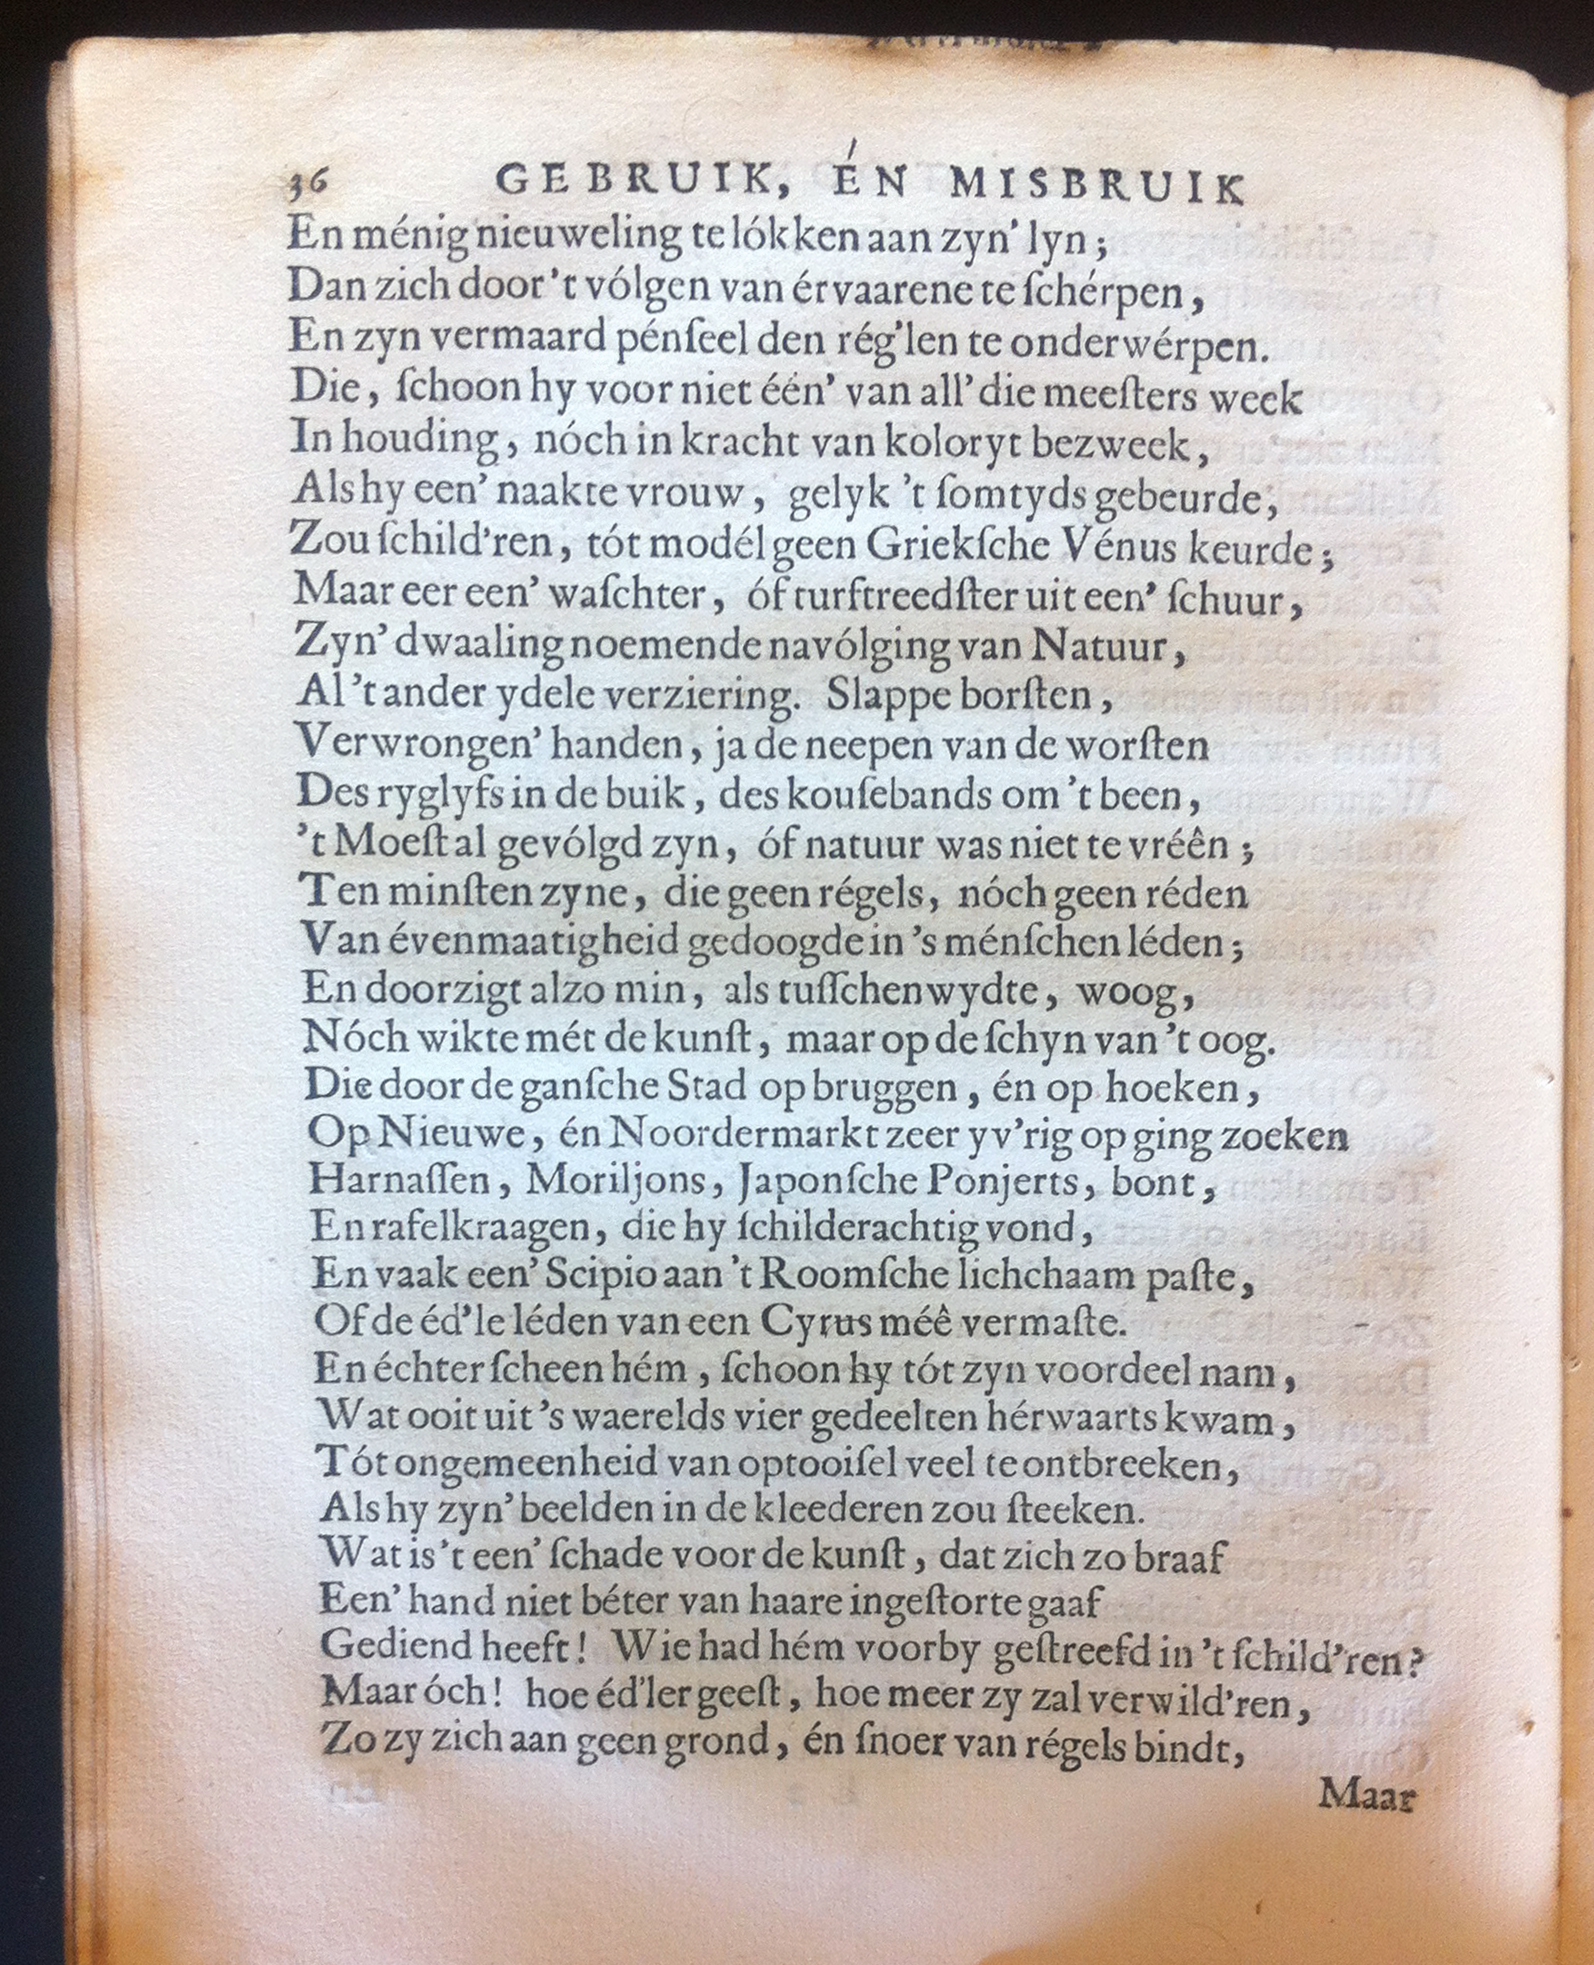 36 GEBRUIK, ÉN MISBRUIK
En ménig nieuweling te lókken aan zyn' lyn;
Dan zich door 't vólgen van érvaarene te ſchérpen,
En zyn vermaard pénſeel den rég'len te onderwérpen.
Die, ſchoon hy voor niet één' van all' die meeſters week
In houding, nóch in kracht van koloryt bezweek,
Als hy een' naakte vrouw, gelyk 't ſomtyds gebeurde,
Zou ſchild'ren, tót modél geen Griekſche Vénus keurde;
Maar eer een' waſchter, óf turftreedſter uit een' ſchuur,
Zyn' dwaaling noemende navólging van Natuur,
Al 't ander ydele verziering. Slappe borſten,
Verwrongen' handen, ja de neepen van de worſten
Des ryglyfs in de buik, des kouſebands om 't been,
't Moeſt al gevólgd zyn, óf natuur was niet te vréên;
Ten minſten zyne, die geen régels, nóch geen réden
Van évenmaatigheid gedoogde in 's ménſchen léden;
En doorzigt alzo min, als tuſſchenwydte, woog,
Nóch wikte mét de kunſt, maar op de ſchyn van 't oog.
Die door de ganſche Stad op bruggen, én op hoeken,
Op Nieuwe, én Noordermarkt zeer yv'rig op ging zoeken
Harnaſſen, Moriljons, Japonſche Ponjerts, bont,
En rafelkraagen, die hy ſchilderachtig vond,
En vaak een' Scipio aan 't Roomſche lichchaam paſte,
Of de éd'le léden van een Cyrus méê vermaſte.
En échter ſcheen hém, ſchoon hy tót zyn voordeel nam,
Wat ooit uit 's waerelds vier gedeelten hérwaarts kwam,
Tót ongemeenheid van optooiſel veel te ontbreeken,
Als hy zyn' beelden in de kleederen zou ſteeken.
Wat is 't een' ſchade voor de kunſt, dat zich zo braaf
Een' hand niet béter van haare ingeſtorte gaaf
Gediend heeft! Wie had hém voorby geſtreefd in 't ſchild'ren?
Maar óch! hoe éd'ler geeſt, hoe meer zy zal verwild'ren,
Zo zy zich aan geen grond, én ſnoer van régels bindt,
Maar